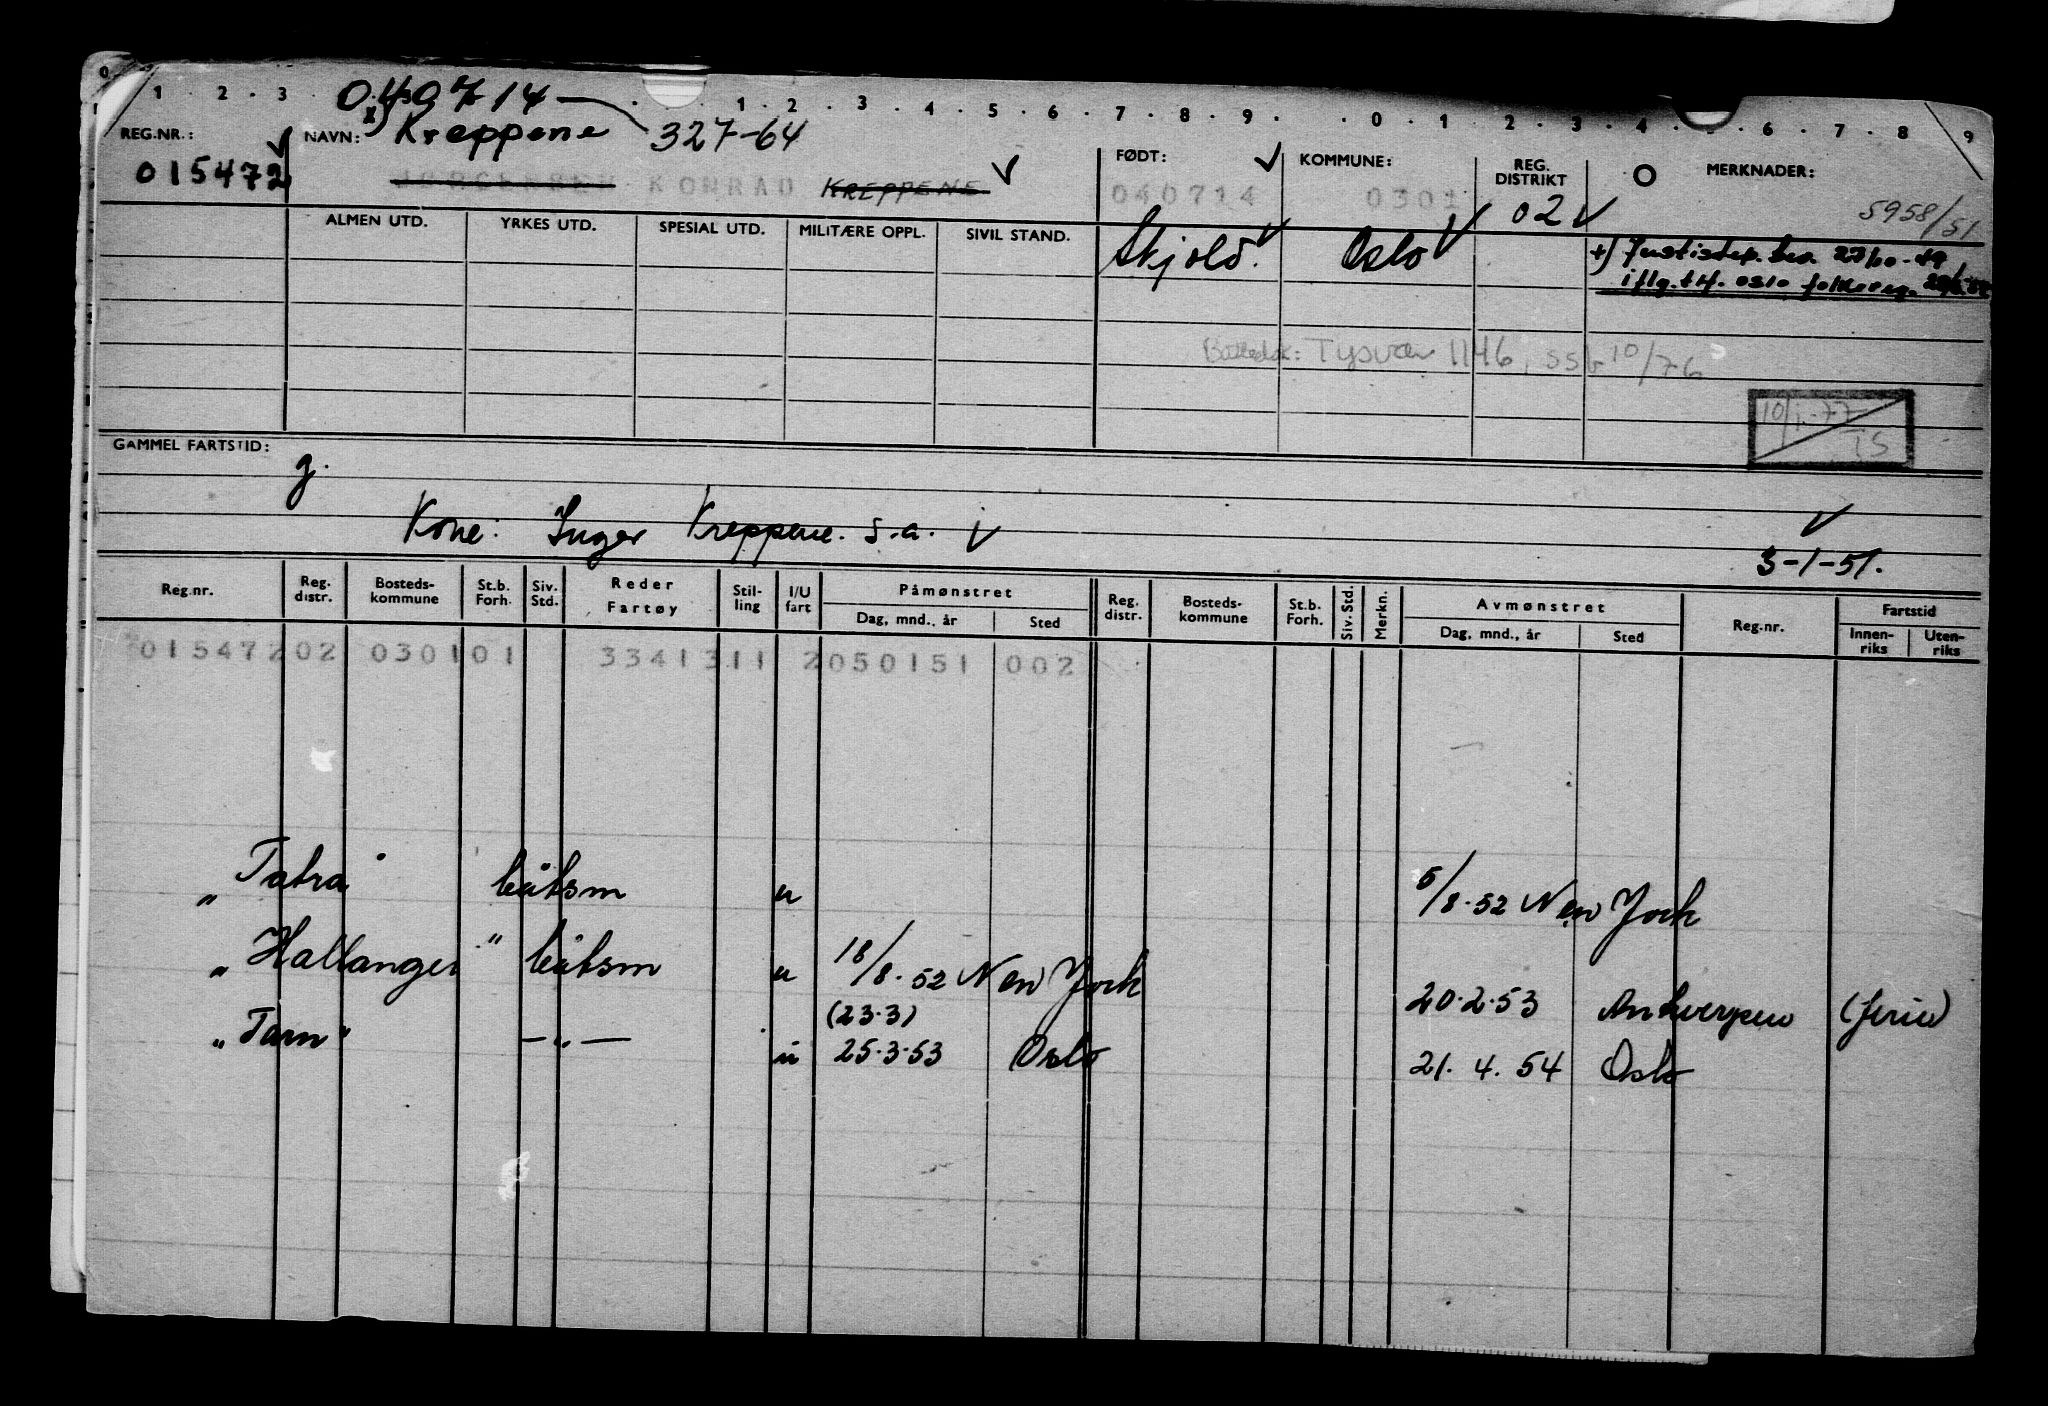 0 1 . 2 . 3 . 1 . 2 . 3 . 4 . 5 . 6 . 7 . 8 . 9 . . 0 . 1 . 2 . 3 . 4 . 5 . 6 . 7 . 8 9
040714
REG.NR.: NAVN: x) Kreppene 327-64 FØDT: KOMMUNE: REG. DISTRIKT O MERKNADER:
015472 KONRAD KREPPENE 040714 0301 02 5958/51
ALMEN UTD. YRKES UTD. SPESIAL UTD. MILITÆRE OPPL. SIVIL STAND. Skjold. Oslo
+) Justisdep. bev.
iflg. Oslo folkereg.
Tysvær 1146, SSb 10/76
10/1-77
TS
GAMMEL FARTSTID: g.
Kone: Inger Kreppene. s.a.
3-1-51.
Reg.nr. Reg. distr. Bosteds-kommune St.b. Forh. Siv. Std. Reder Fartøy Stil-ling I/U fart Påmønstret Dag, mnd., år Sted Reg. distr. Bosteds-kommune St.b. Forh. Siv. Std. Merkn. Avmønstret Dag, mnd., år Sted Reg.nr. Fartstid Innen-riks Uten-riks
015472 02 0301 01 33413 11 2 050151 002
"Tatra" båtsm u 5/8-52 New York
"Hallanger" båtsm u 18/8-52 New York 20.2.53 Antwerpen (ferie)
(23.3)
"Tarn" —"— u 25.3.53 Oslo 21.4.54 Oslo